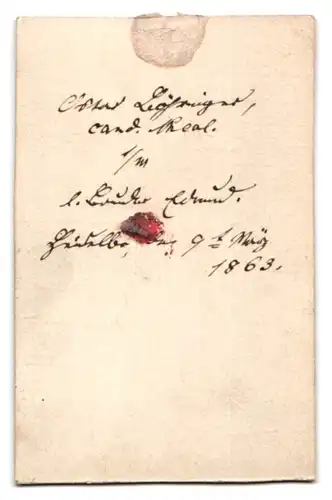 Oskar Löhringer,
cand. theol.
s/m
l. Bruder Edmund.
Heidelbg, den 9t März
1863.